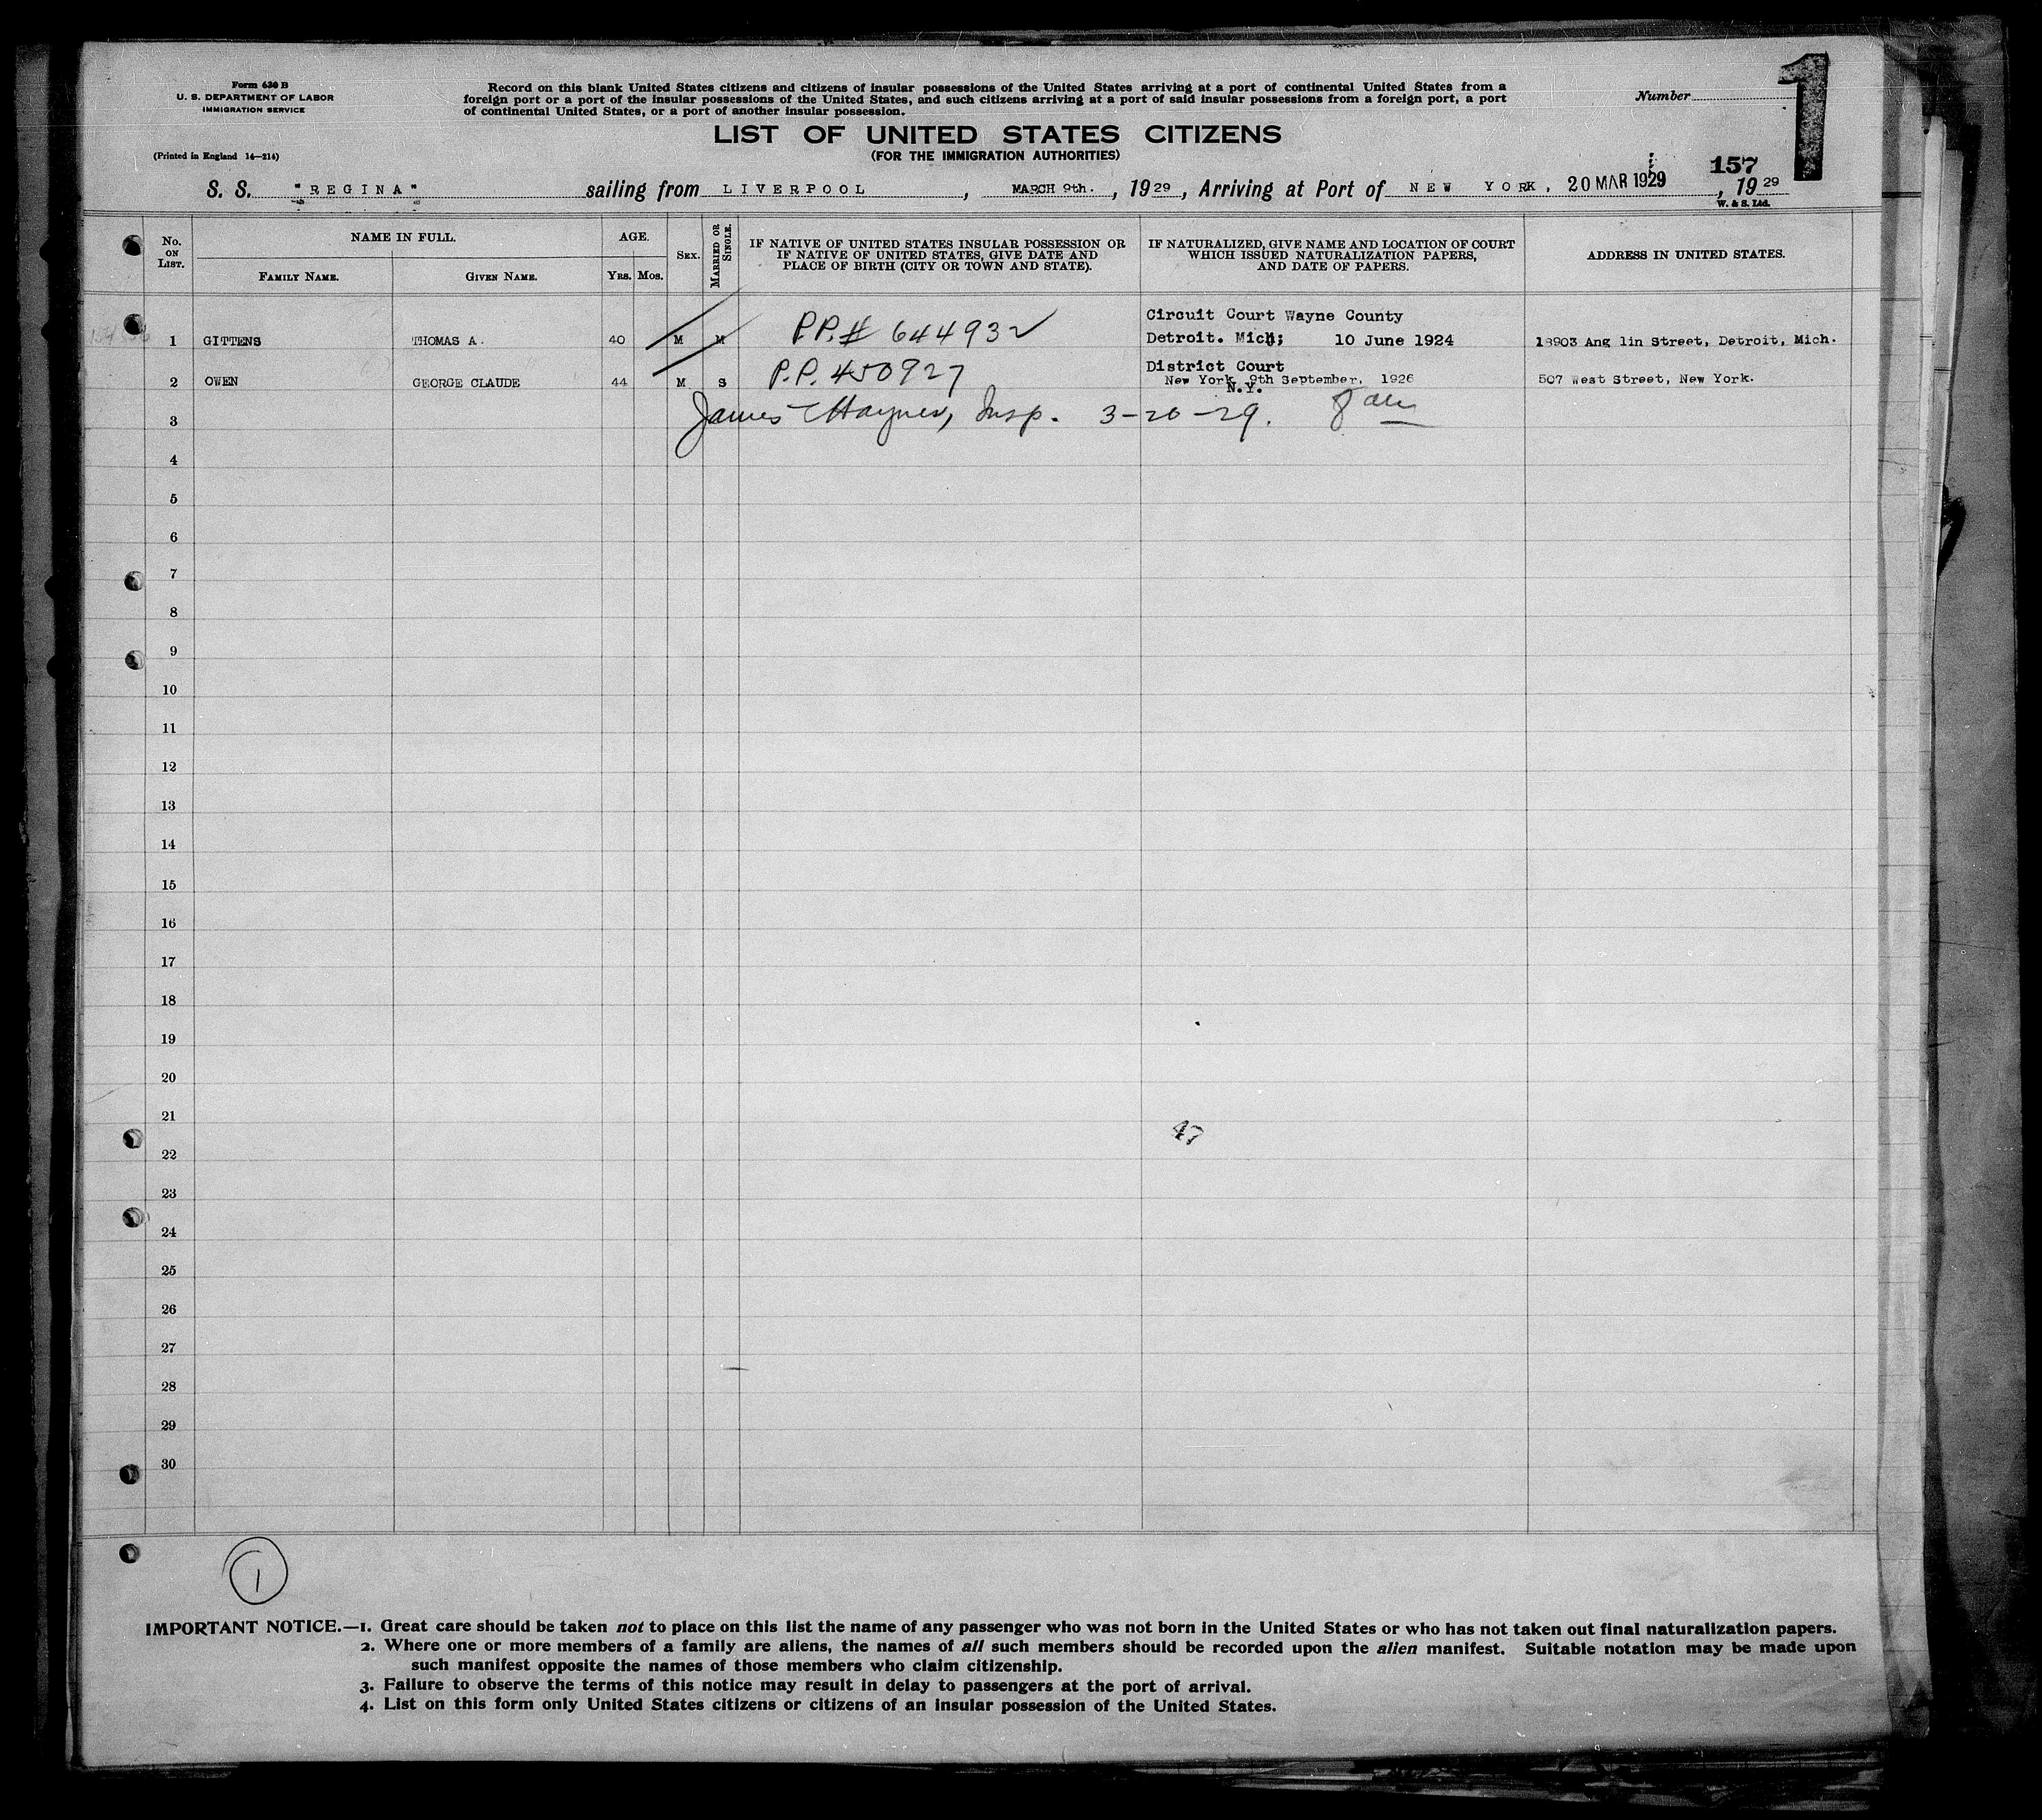 Form 630 B
U. S. DEPARTMENT OF LABOR
IMMIGRATION SERVICE
(Printed in England 14—214)
Record on this blank United States citizens and citizens of insular possessions of the United States arriving at a port of continental United States from a
foreign port or a port of the insular possessions of the United States, and such citizens arriving at a port of said insular possessions from a foreign port, a port
of continental United States, or a port of another insular possession.
Number
1
LIST OF UNITED STATES CITIZENS
(FOR THE IMMIGRATION AUTHORITIES)
157
S. S. "REGINA" sailing from LIVERPOOL, MARCH 9th., 1929, Arriving at Port of NEW YORK, 20 MAR 1929, 1929
W. & S. Ltd.
No. ON LIST.
NAME IN FULL.
FAMILY NAME.
GIVEN NAME.
AGE.
YRS. MOS.
SEX.
MARRIED OR SINGLE.
IF NATIVE OF UNITED STATES INSULAR POSSESSION OR
IF NATIVE OF UNITED STATES, GIVE DATE AND
PLACE OF BIRTH (CITY OR TOWN AND STATE).
IF NATURALIZED, GIVE NAME AND LOCATION OF COURT
WHICH ISSUED NATURALIZATION PAPERS,
AND DATE OF PAPERS.
ADDRESS IN UNITED STATES.
Circuit Court Wayne County
1 GITTENS THOMAS A. 40 M M P.P.# 644932 Detroit. Mich; 10 June 1924 18903 Ang lin Street, Detroit, Mich.
District Court
2 OWEN GEORGE CLAUDE 44 M S P.P. 450927 New York 9th September, 1926 507 West Street, New York.
N.Y.
3 James Haynes, Insp. 3-20-29. 8 am
4
5
6
7
8
9
10
11
12
13
14
15
16
17
18
19
20
21
47
22
23
24
25
26
27
28
29
30
1
IMPORTANT NOTICE.—1. Great care should be taken not to place on this list the name of any passenger who was not born in the United States or who has not taken out final naturalization papers.
2. Where one or more members of a family are aliens, the names of all such members should be recorded upon the alien manifest. Suitable notation may be made upon
such manifest opposite the names of those members who claim citizenship.
3. Failure to observe the terms of this notice may result in delay to passengers at the port of arrival.
4. List on this form only United States citizens or citizens of an insular possession of the United States.